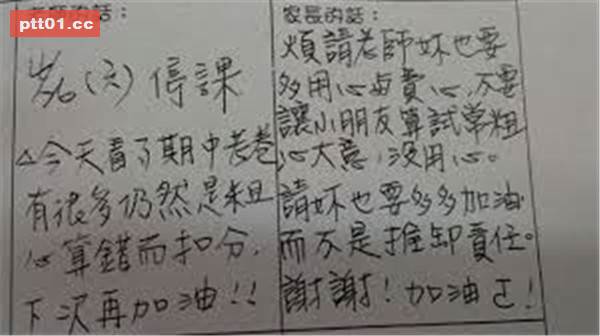 ptt01.cc
老師的話：
(六)停課
△今天看了期中考卷
有很多仍然是粗
心算錯而扣分，
下次再加油!!
家長的話：
煩請老師妳也要
多用心與費心，不要
讓小朋友算試常粗
心大意，沒用心。
請妳也要多多加油
而不是推卸責任。
謝謝！加油